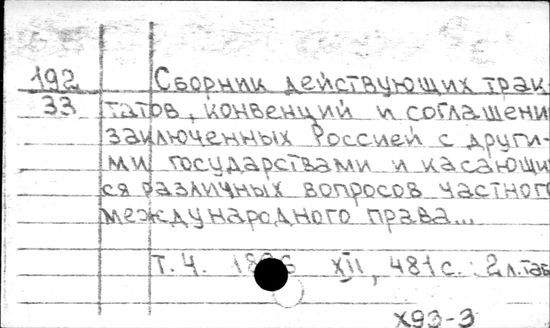 192 Сборник действующих трак-
33 татов, конвенций и соглашени
заключенных Россией с други-
ми государствами и касающи
ся различных вопросов частного
международного права...
Т. 4. XII, 481 с.: 2 л. таб
X93-3